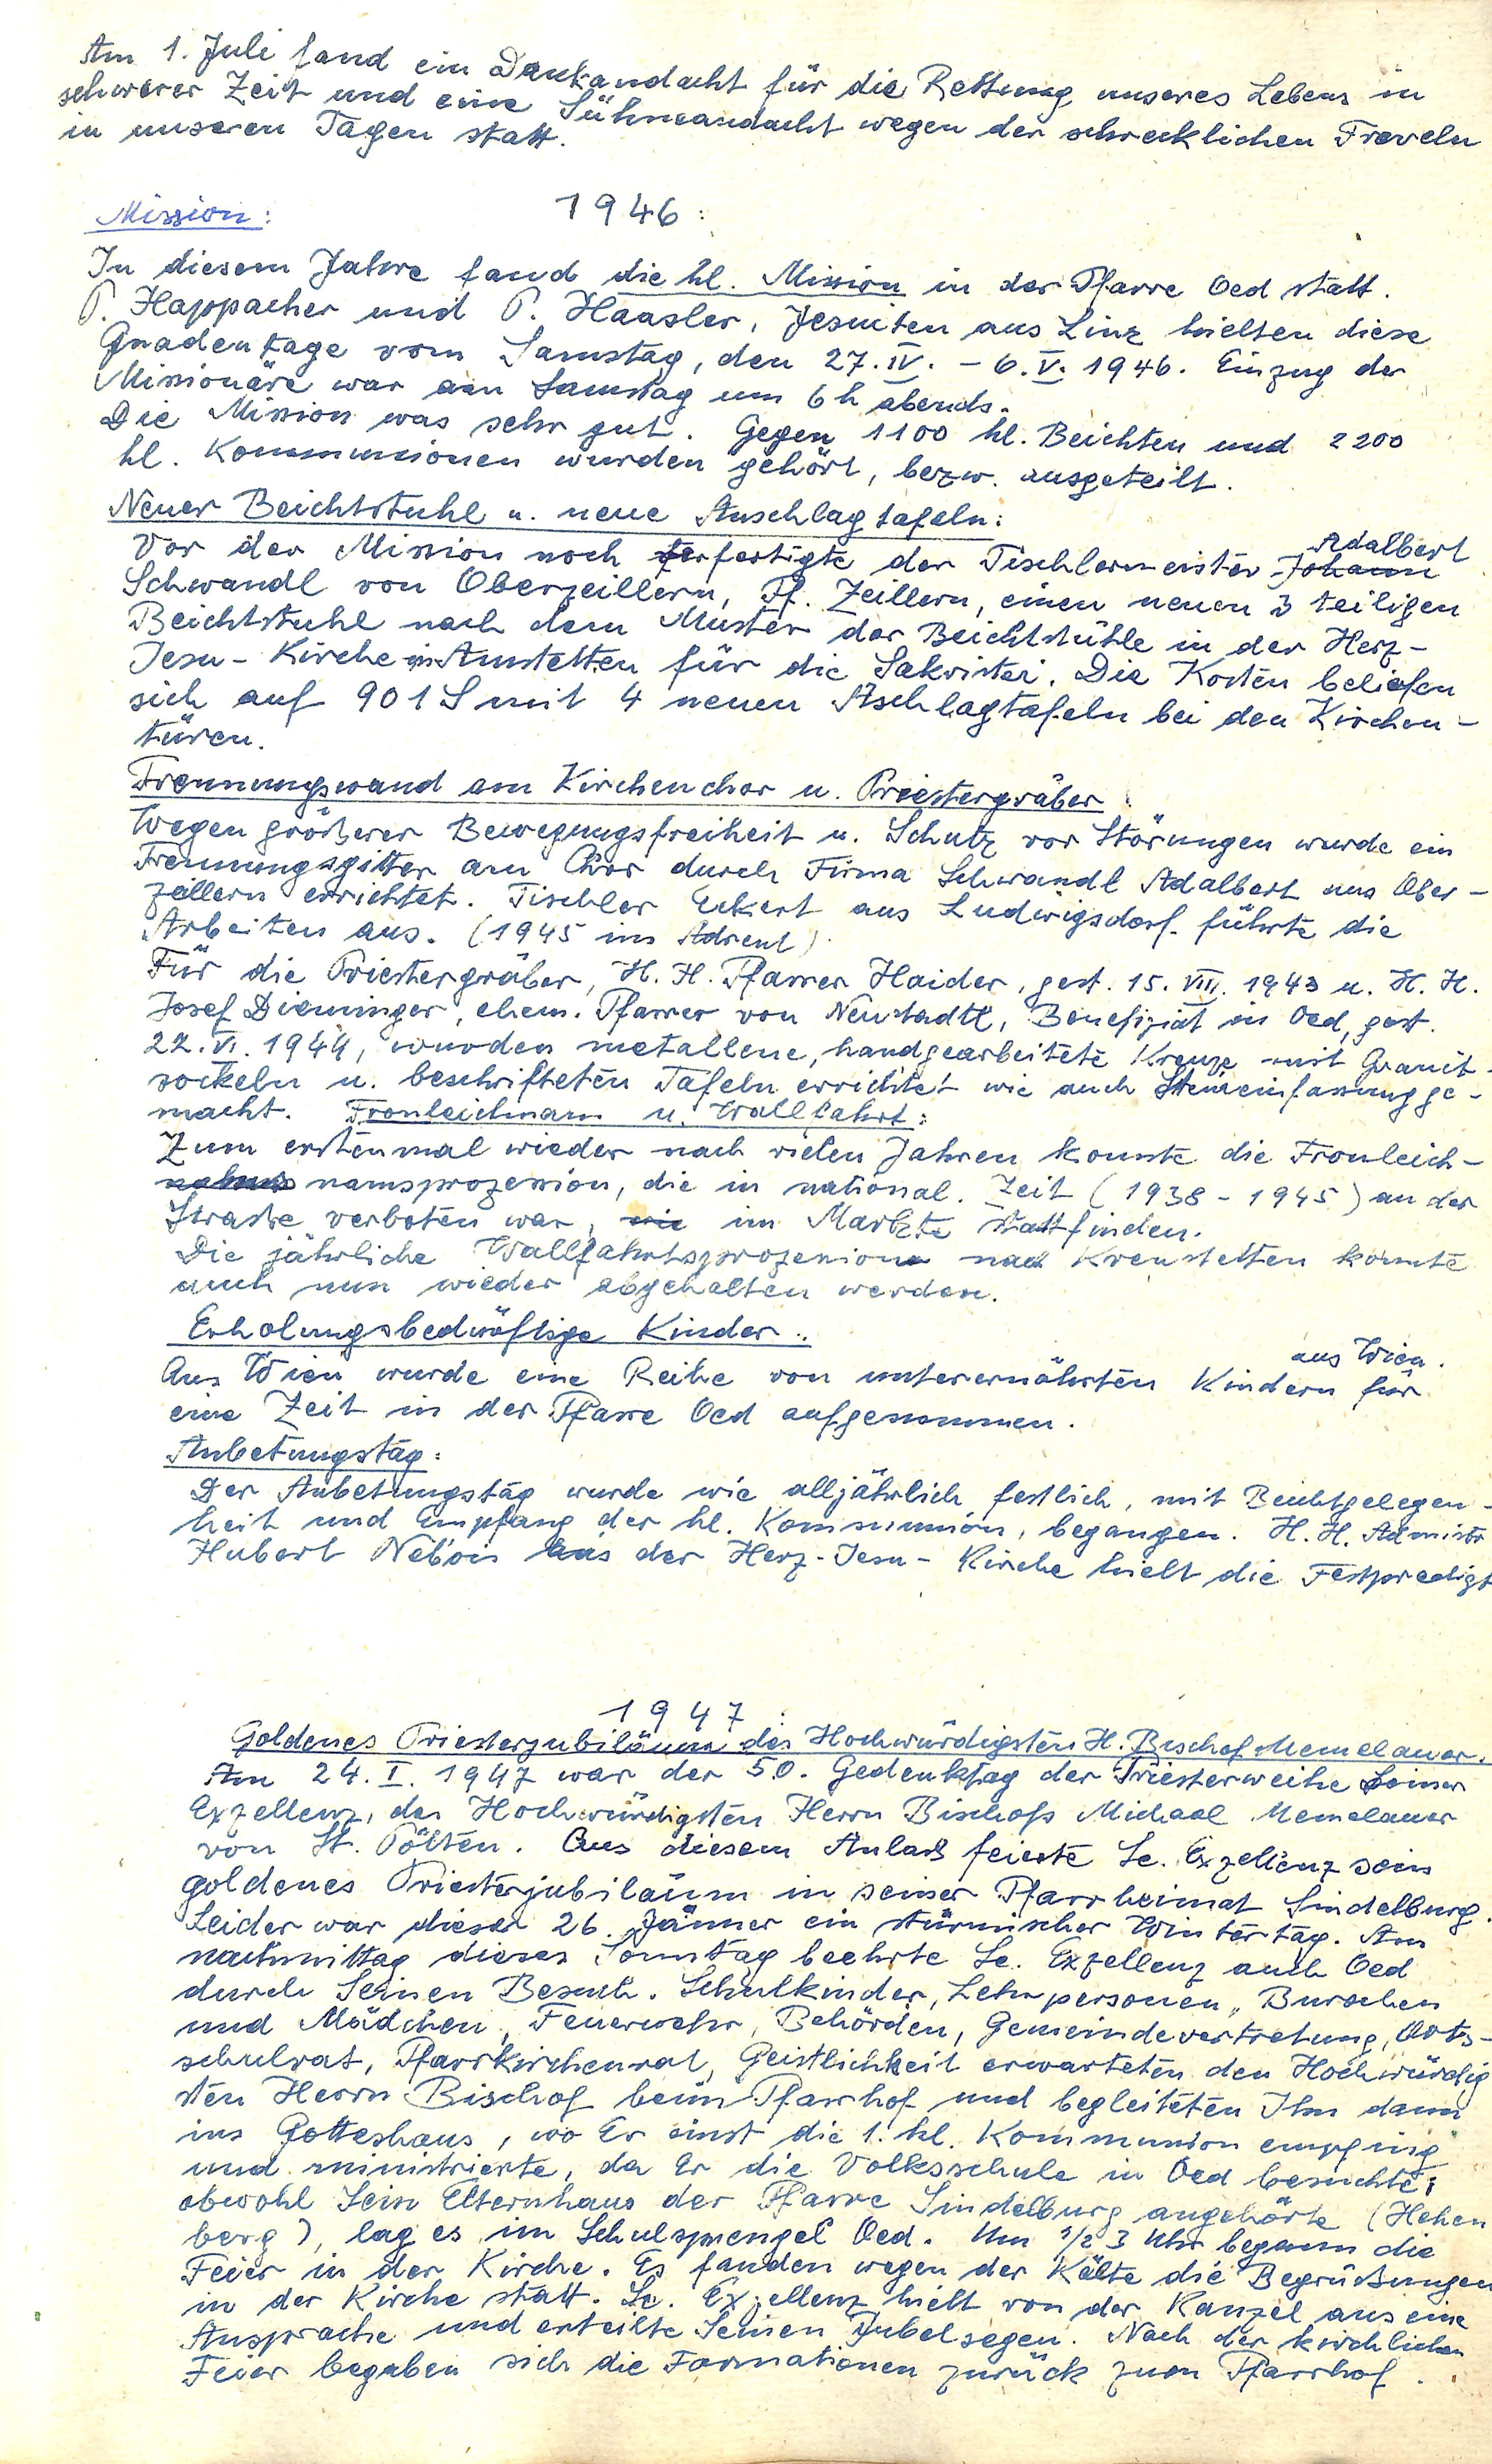 Am 1. Juli fand ein Dankandacht für die Rettung unseres Lebens in
schwerer Zeit und eine Sühneandacht wegen der schrecklichen Freveln
in unseren Tagen statt.
Mission: 1946:
In diesem Jahre fand die hl. Mission in der Pfarre Oed statt.
P. Happacher und P. Haasler, Jesuiten aus Linz hielten diese
Gnadentage vom Samstag, den 27. IV. - 6. V. 1946. Einzug der
Missionäre war am Samstag um 6 h abends.
Die Mission was sehr gut. Gegen 1100 hl. Beichten und 2200
hl. Kommunionen wurden gehört, bezw. ausgeteilt.
Neuer Beichtstuhl u. neue Anschlagtafeln:
Vor der Mission noch verfertigte der Tischlermeister Johann Adalbert
Schwandl von Oberzeillern, Pf. Zeillern, einen neuen 3 teiligen
Beichtstuhl nach dem Muster der Beichtstühle in der Herz-
Jesu-Kirche in Amstetten für die Sakristei. Die Kosten beliefen
sich auf 901 S mit 4 neuen Aschlagtafeln bei den Kirchen-
türen.
Trennungswand am Kirchenchor u. Priestergräber:
Wegen größerer Bewegungsfreiheit u. Schutz vor Störungen wurde ein
Trennungsgitter am Chor durch Firma Schwandl Adalbert aus Ober-
zeillern errichtet. Tischler Eckert aus Ludwigsdorf führte die
Arbeiten aus. (1945 im Advent)
Für die Priestergräber, H. H. Pfarrer Haider, gest. 15. VIII. 1943 u. H. H.
Josef Dieminger, ehem. Pfarrer von Neustadtl, Benefiziat in Oed, gest.
22. VI. 1944, wurden metallene, handgearbeitete Kreuze mit Granit-
sockeln u. beschrifteten Tafeln errichtet wie auch Steineinfassung ge-
macht. Fronleichnam u. Wallfahrt:
Zum erstenmal wieder nach vielen Jahren konnte die Fronleich-
namsprozession, die in national. Zeit (1938 - 1945) an der
Strasse verboten war, im Markte stattfinden.
Die jährliche Wallfahrtsprozession nach Krenstetten konnte
auch nun wieder abgehalten werden.
Erholungsbedürftige Kinder:
Aus Wien wurde eine Reihe von unterernährten Kindern aus Wien für
eine Zeit in der Pfarre Oed aufgenommen.
Anbetungstag:
Der Anbetungstag wurde wie alljährlich festlich, mit Beichtgelegen-
heit und Empfang der hl. Kommunion, begangen. H. H. Admistr
Hubert Nebois aus der Herz-Jesu-Kirche hielt die Festpredigt
1947:
Goldenes Priesterjubiläum des Hochwürdigsten H. Bischof Memelauer.
Am 24. I. 1947 war der 50. Gedenktag der Priesterweihe Seiner
Exzellenz, des Hochwürdigsten Herrn Bischofs Michael Memelauer
von St. Pölten. Aus diesem Anlaß feierte Se. Exzellenz sein
goldenes Priesterjubiläum in seiner Pfarrheimat Sindelburg.
Leider war dieser 26. Jänner ein stürmischer Wintertag. Am
nachmittag dieses Sonntag beehrte Se. Exzellenz auch Oed
durch Seinen Besuch. Schulkinder, Lehrpersonen, Burschen
und Mädchen, Feuerwehr, Behörden, Gemeindevertretung, Orts-
schulrat, Pfarrkirchenrat, Geistlichkeit erwarteten den Hochwürdig
sten Herrn Bischof beim Pfarrhof und begleiteten Ihn dann
ins Gotteshaus, wo Er einst die 1. hl. Kommunion empfing
und ministrierte, da Er die Volksschule in Oed besuchte;
obwohl Sein Elternhaus der Pfarre Sindelburg angehörte (Hehen
berg), lag es im Schulsprengel Oed. Um 1/2 3 Uhr begann die
Feier in der Kirche. Es fanden wegen der Kälte die Begrüßungen
in der Kirche statt. Se. Exzellenz hielt von der Kanzel aus eine
Ansprache und erteilte Seinen Jubelsegen. Nach der kirchlichen
Feier begaben sich die Formationen zurück zum Pfarrhof.